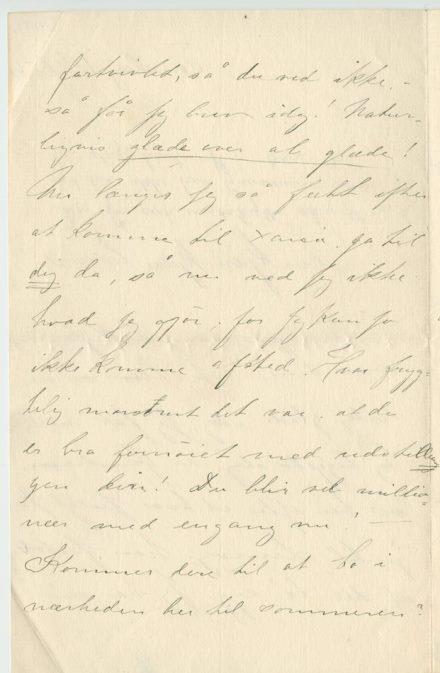 fortvivlet, så du ved ikke. –
så får jeg brev idag! Natur-
ligvis glæde over al glæde!
Nu længes jeg så fælt efter
at komme til Xania. ja til
dig da, så nu ved jeg ikke
hvad jeg gjør. for jeg kan jo
ikke komme afsted. Hvor hygg-
elig morsomt det var. at du
er bra fornøiet med udstilling
gen din! Du blir vel millio-
nær med engang nu! –
Kommer dere til at bo i
nærheden her til sommeren?